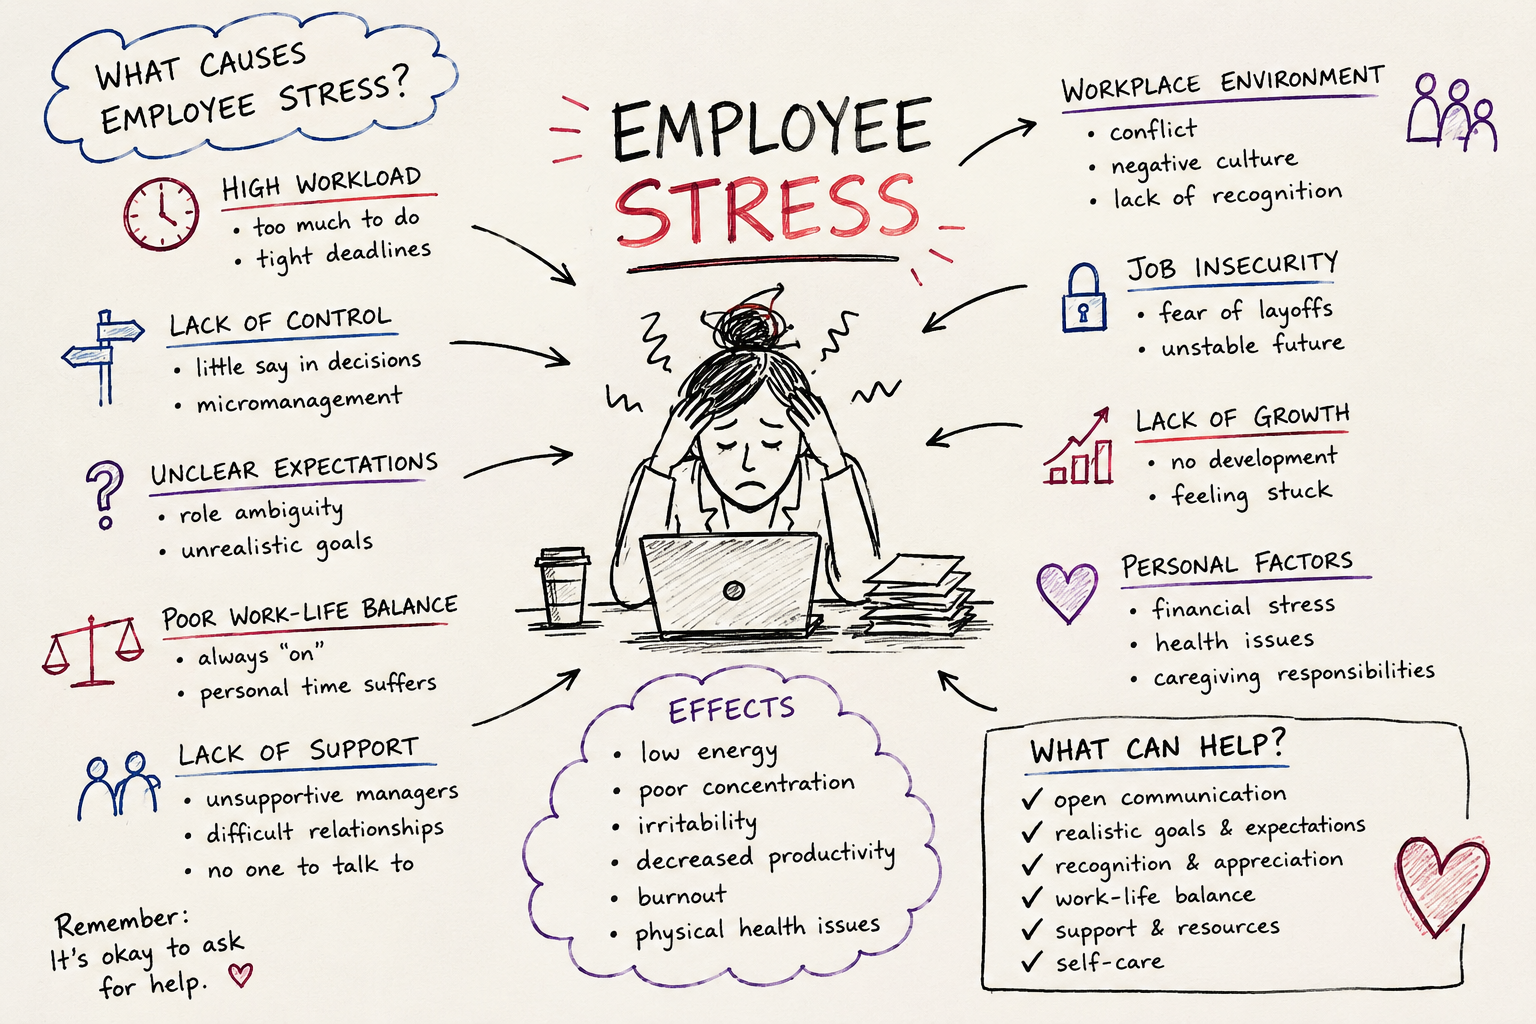 WHAT CAUSES
EMPLOYEE STRESS?
HIGH WORKLOAD
• too much to do
• tight deadlines
LACK OF CONTROL
• little say in decisions
• micromanagement
?
UNCLEAR EXPECTATIONS
• role ambiguity
• unrealistic goals
POOR WORK-LIFE BALANCE
• always "on"
• personal time suffers
LACK OF SUPPORT
• unsupportive managers
• difficult relationships
• no one to talk to
Remember:
It's okay to ask
for help.
EMPLOYEE
STRESS
EFFECTS
• low energy
• poor concentration
• irritability
• decreased productivity
• burnout
• physical health issues
WORKPLACE ENVIRONMENT
• conflict
• negative culture
• lack of recognition
JOB INSECURITY
• fear of layoffs
• unstable future
LACK OF GROWTH
• no development
• feeling stuck
PERSONAL FACTORS
• financial stress
• health issues
• caregiving responsibilities
WHAT CAN HELP?
✓ open communication
✓ realistic goals & expectations
✓ recognition & appreciation
✓ work-life balance
✓ support & resources
✓ self-care